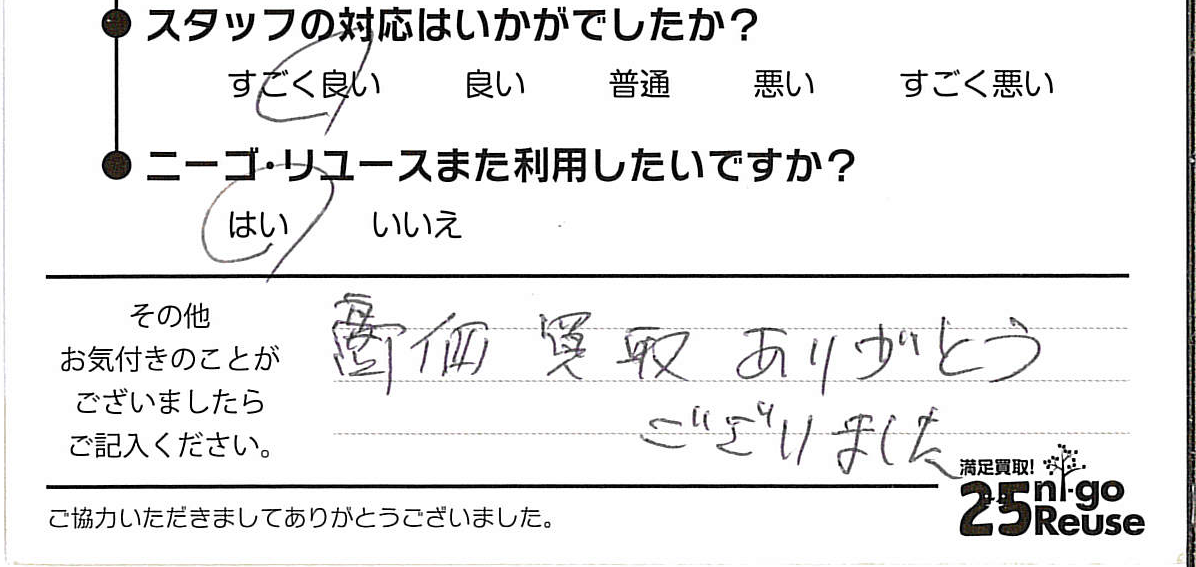 スタッフの対応はいかがでしたか？
すごく良い 良い 普通 悪い すごく悪い
ニーゴ・リユースまた利用したいですか？
はい いいえ
その他
お気付きのことが
ございましたら
ご記入ください。
高価 買取 ありがとう
ございました
満足買取!
25 ni-go
Reuse
ご協力いただきましてありがとうございました。